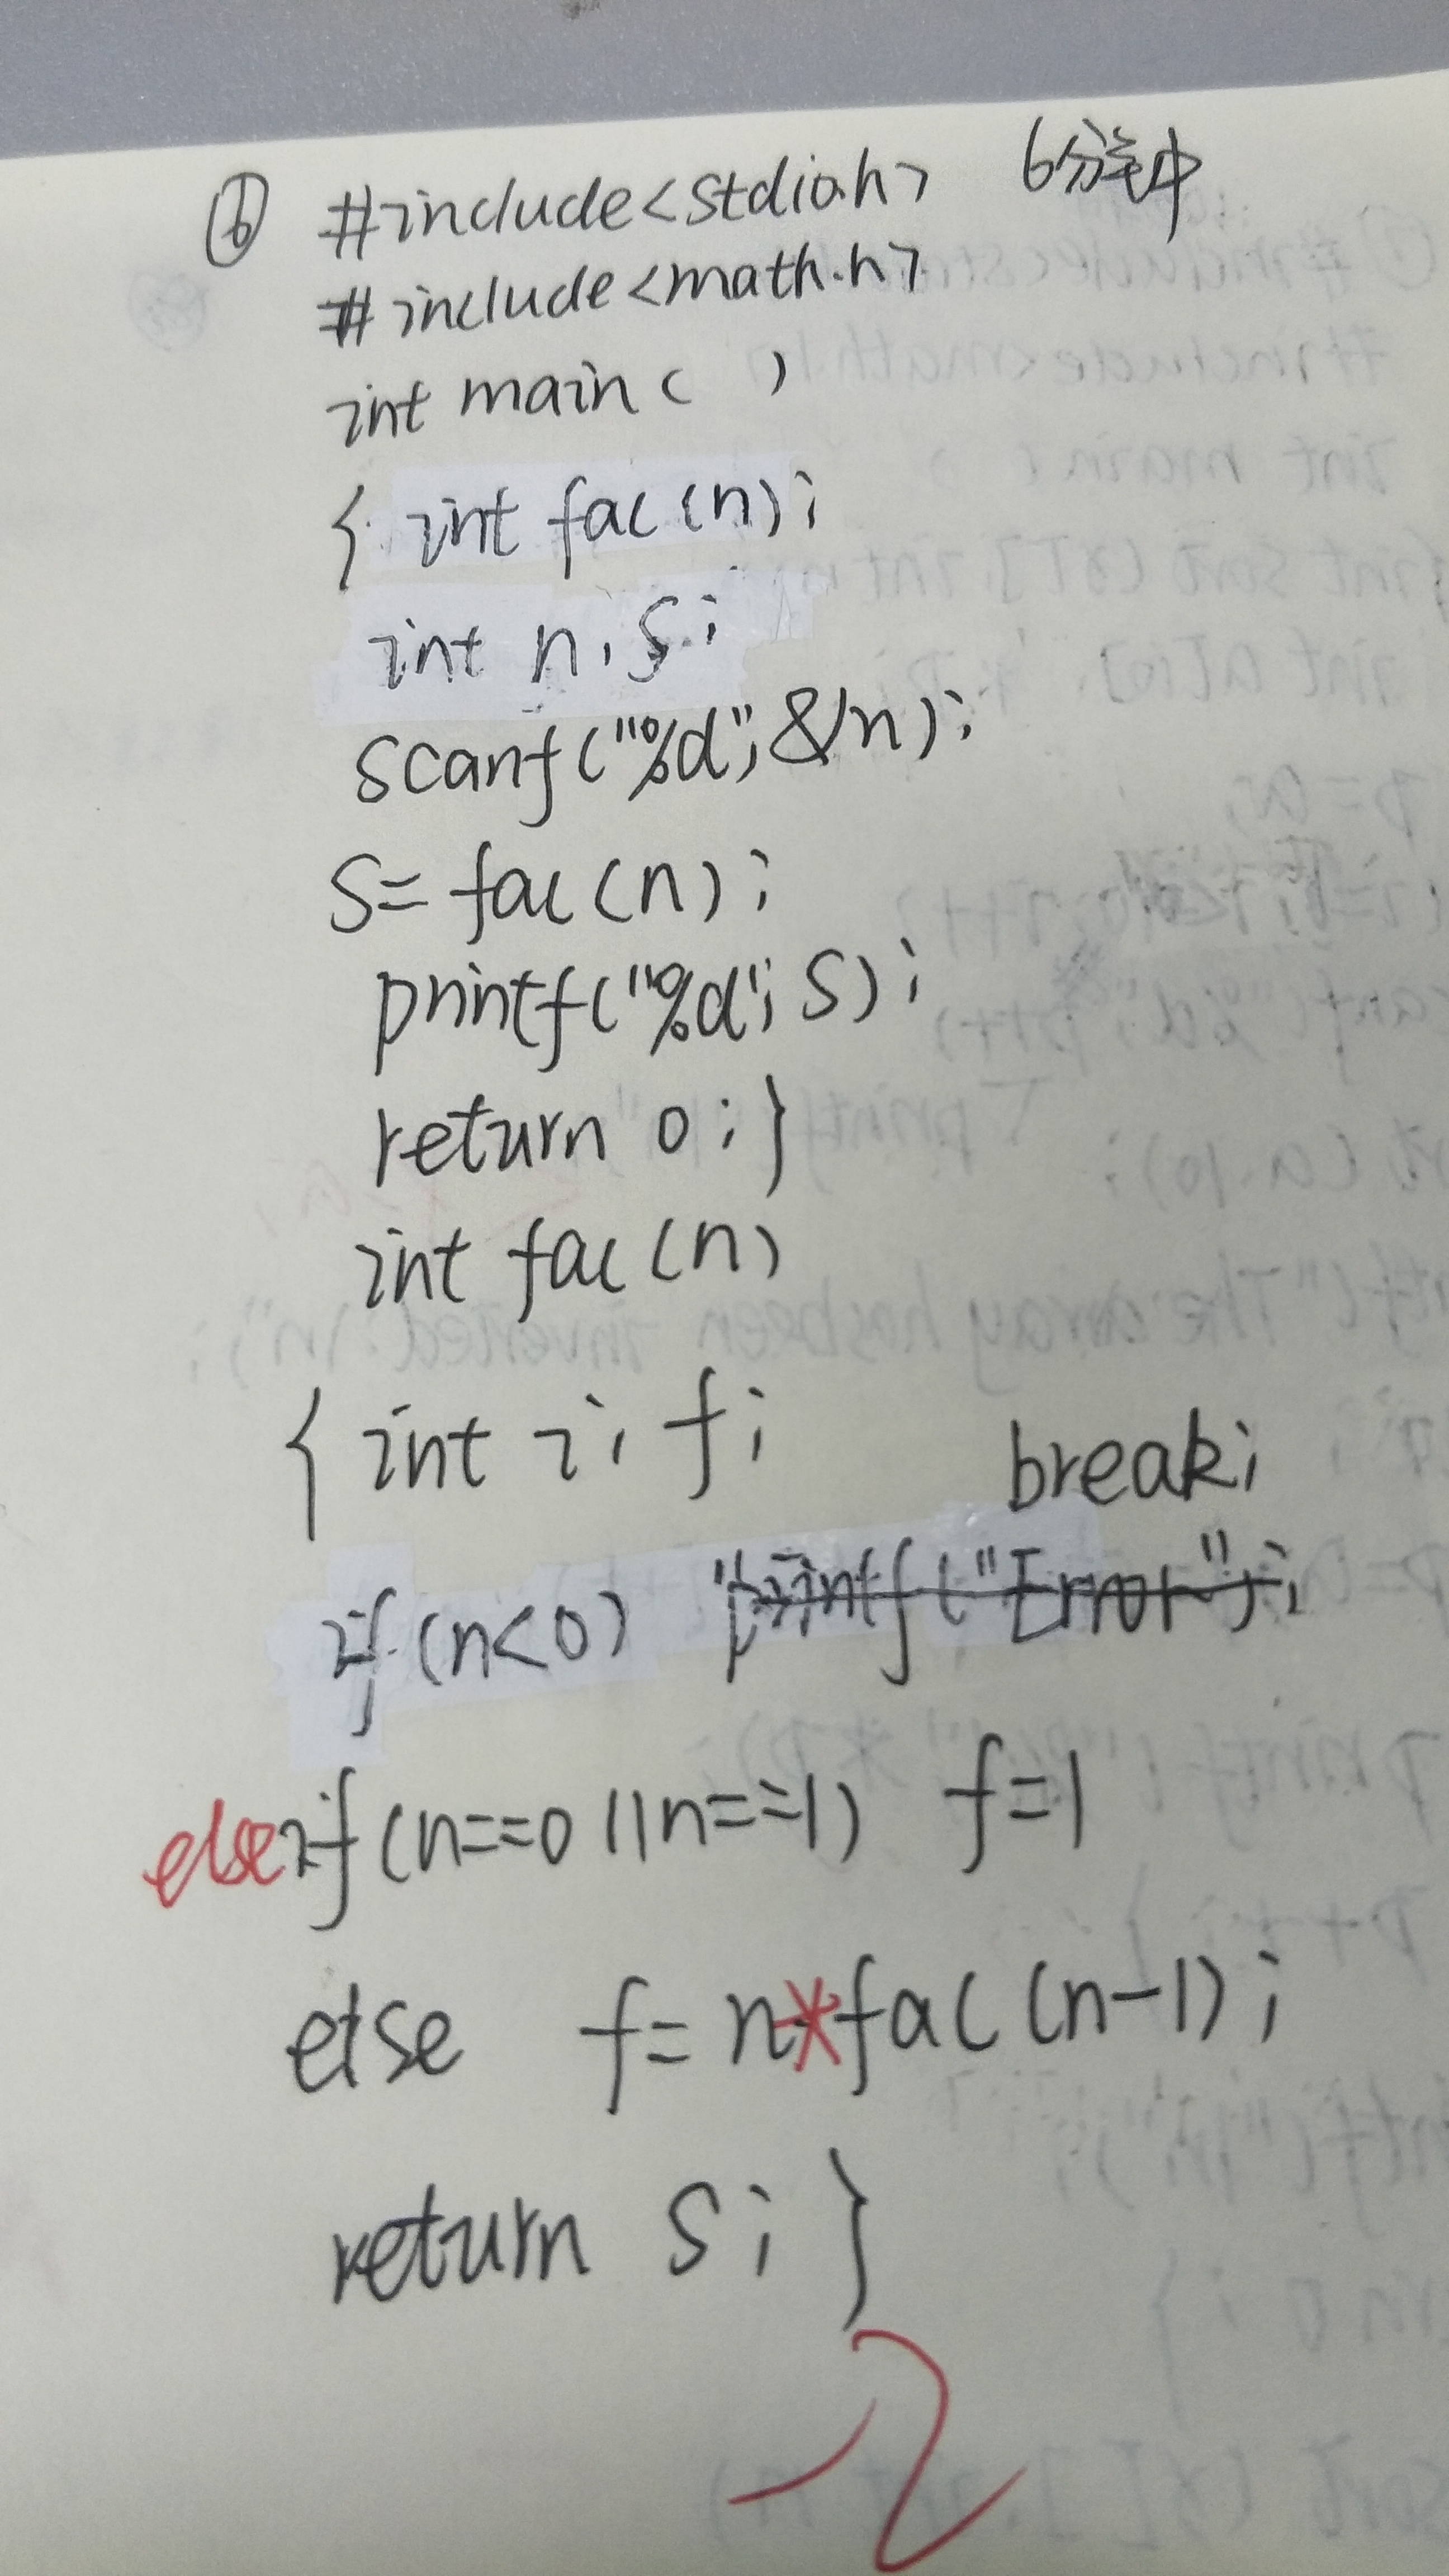 ⑥ #include<stdio.h> 6分钟
#include<math.h>
int main( )
{ int fac(n);
int n,s;
scanf("%d",&n);
s= fac(n);
printf("%d",s);
return 0;}
int fac(n)
{ int i,f;
break;
if(n<0) printf("Error");
else if(n==0||n==1) f=1
else f=n*fac(n-1);
return s;}
-2